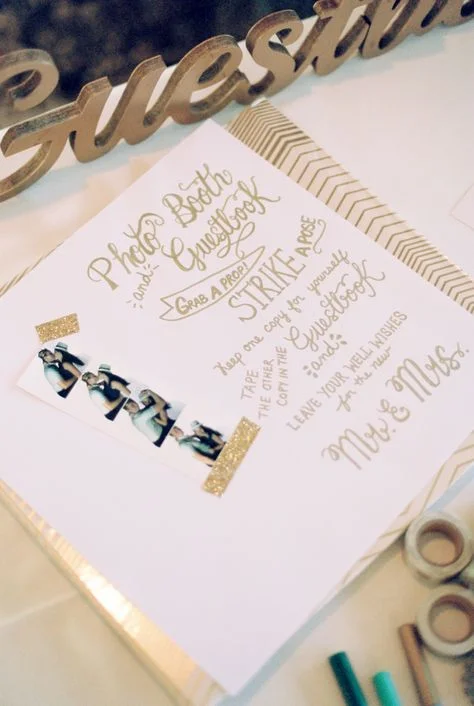 Guestbo
Photo Booth
and Guestbook
GRAB A PROP!
STRIKE A POSE
Keep one copy for yourself
TAPE
THE OTHER
COPY IN THE
Guestbook
and
LEAVE YOUR WELL WISHES
for the new
Mr. & Mrs.